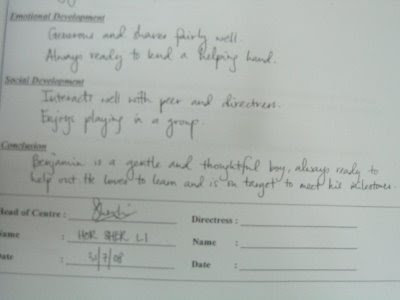 Emotional Development
Generous and shares fairly well.
Always ready to lend a helping hand.
Social Development
Interacts well with peer and directress.
Enjoys playing in a group.
Conclusion
Benjamin is a gentle and thoughtful boy, always ready to
help out. He loves to learn and is on target to meet his milestones.
Head of Centre :
Directress :
Name : HOR SHER LI
Name :
Date : /7/08
Date :